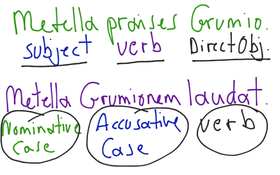 Metella praises Grumio.
subject verb DirectObj.
Metella Grumionem laudat.
Nominative Accusative verb
Case Case